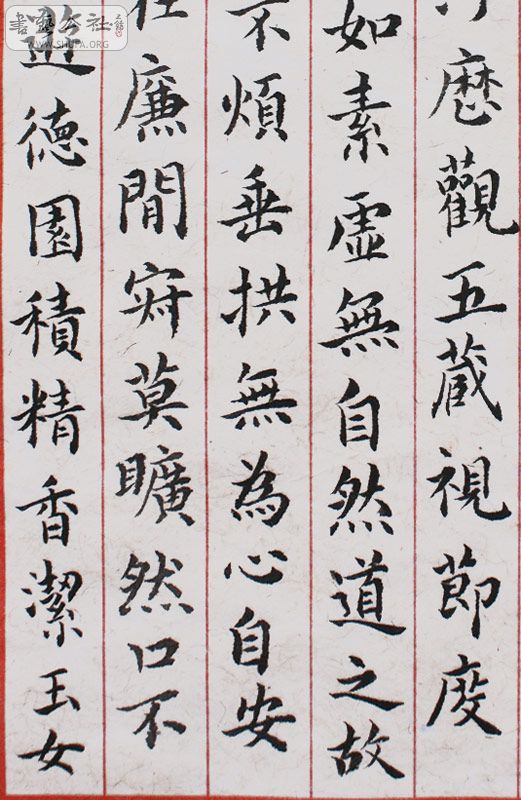 厯觀五蔵視節度
如素虛無自然道之故
不煩垂拱無為心自安
在廉閒寂莫曠然口不
遊德園積精香潔玉女
書藝公社
WWW.SHUFA.ORG